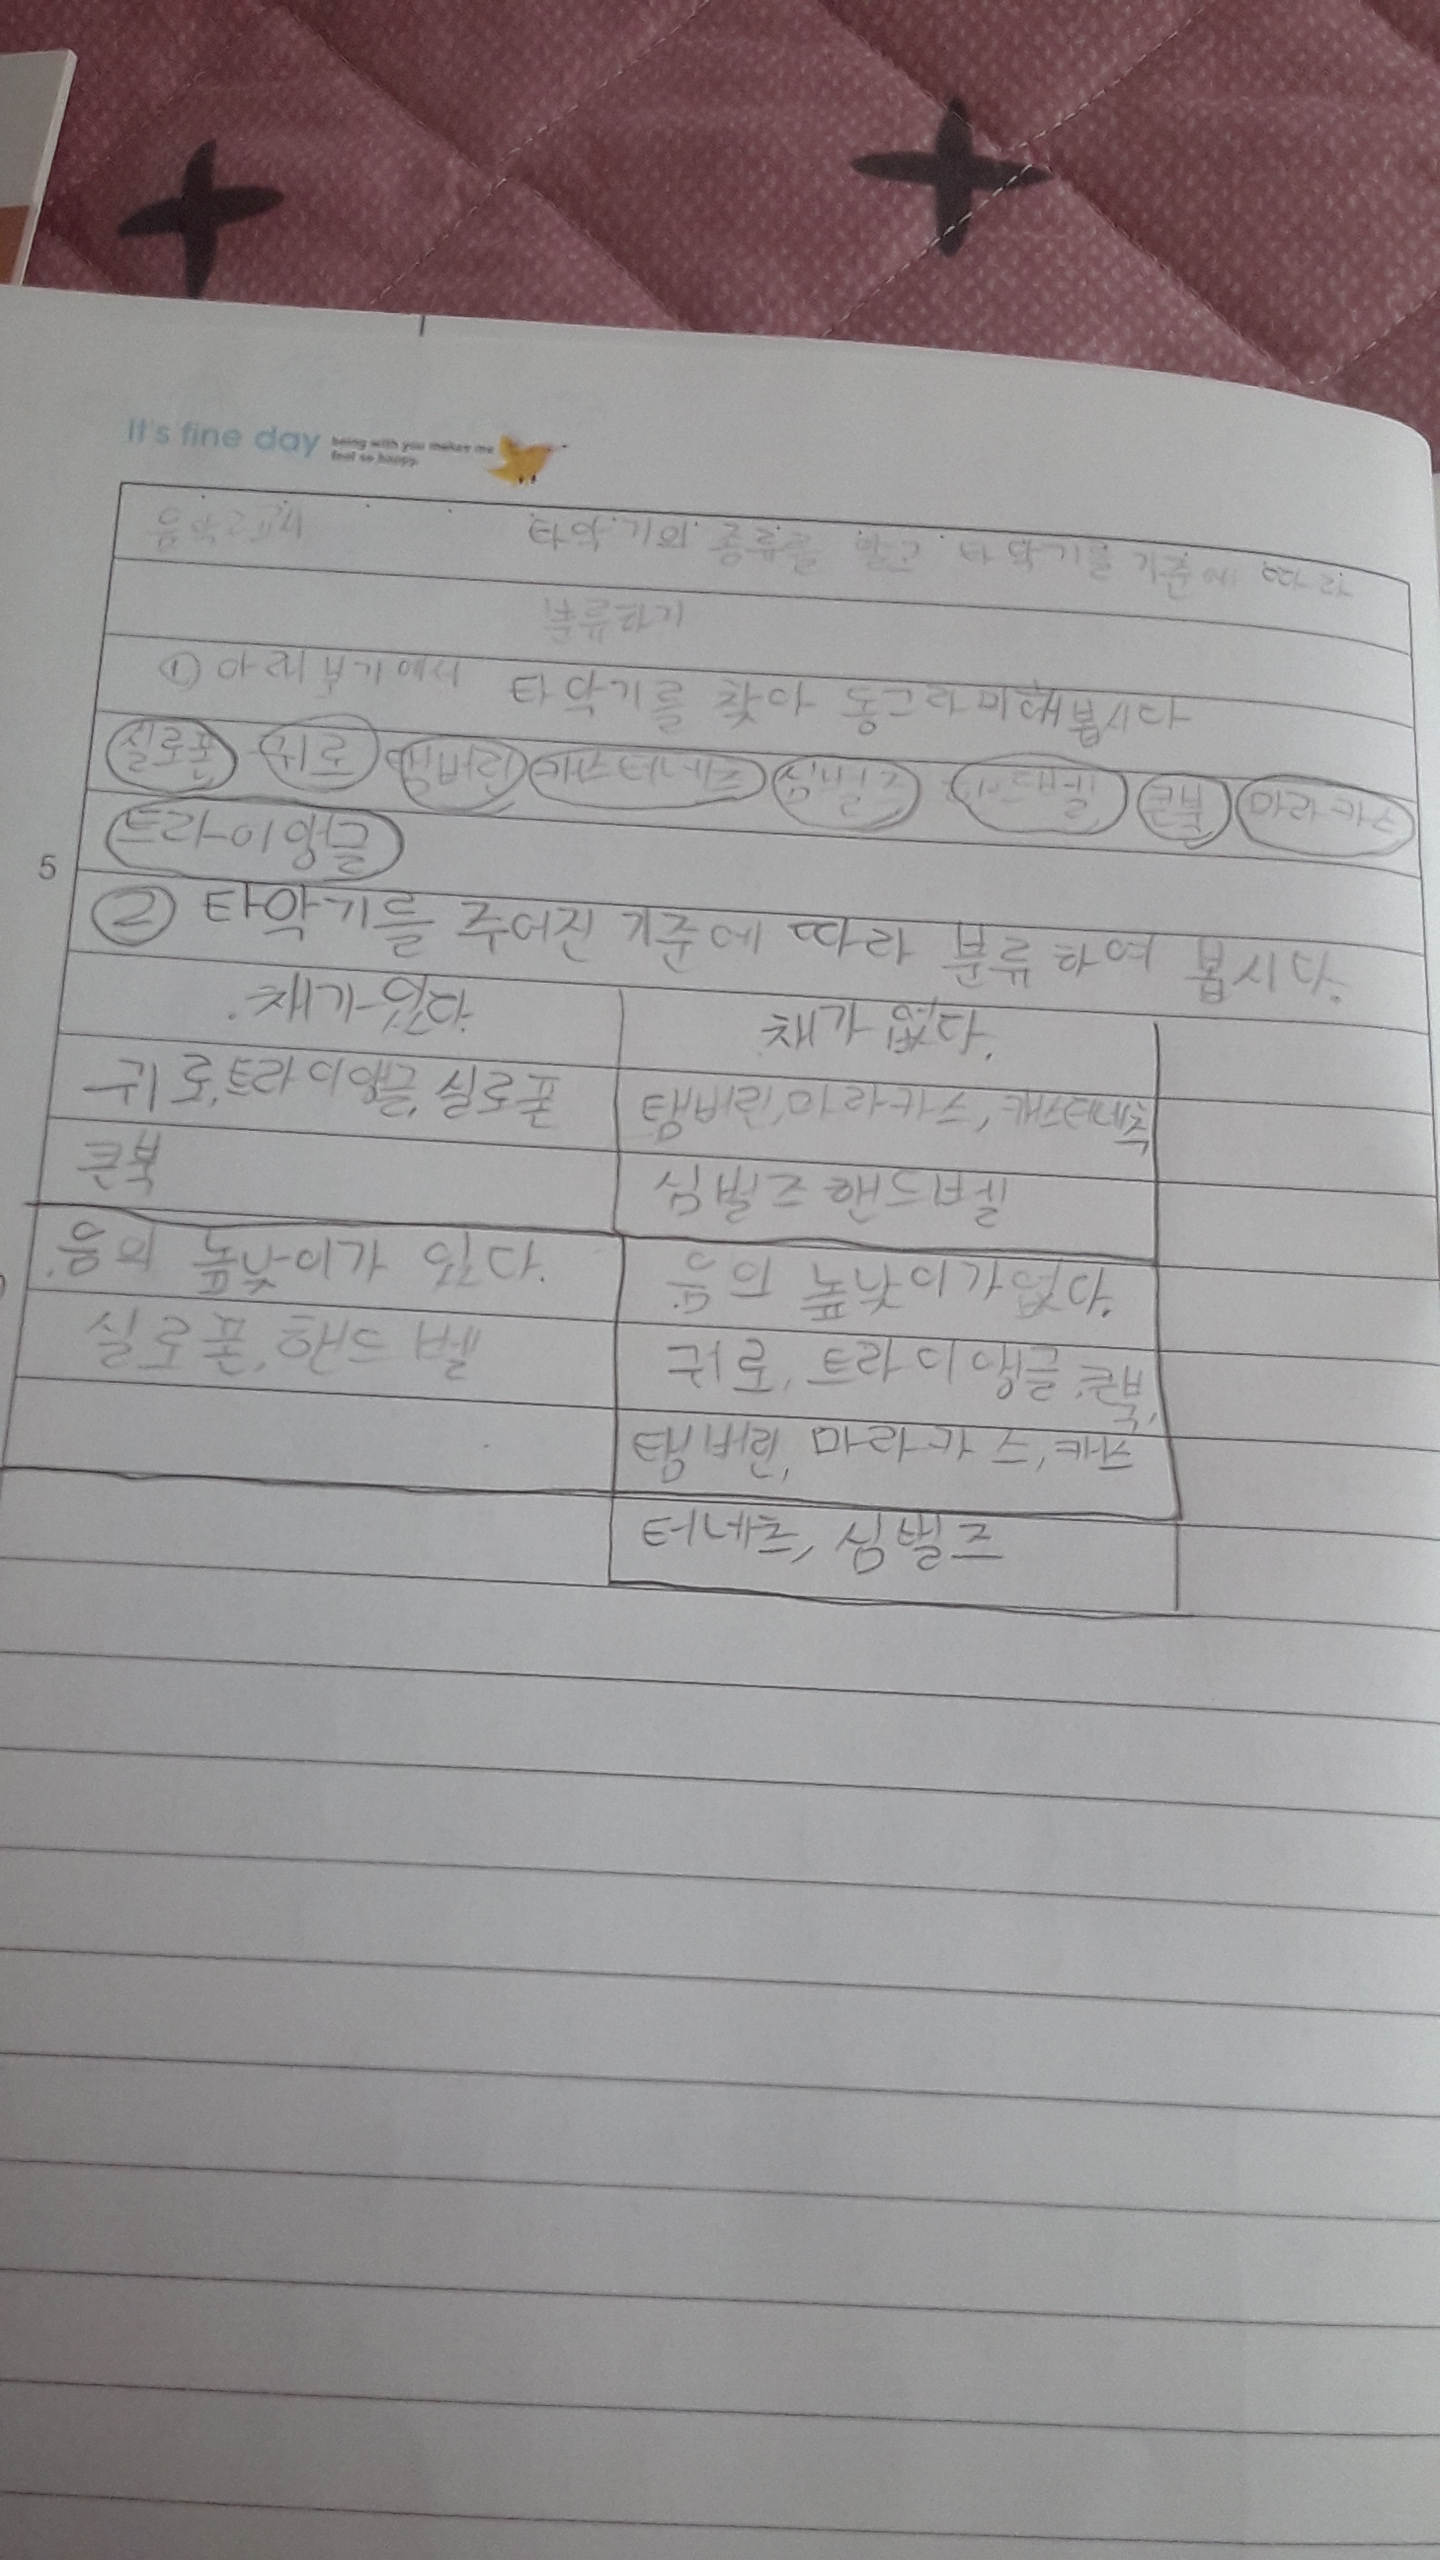 It's fine day being with you makes me
feel so happy.
음악교과서 타악기의 종류를 알고 타악기를 기준에 따라
분류하기
① 아래 보기에서 타악기를 찾아 동그라미해봅시다
실로폰 귀로 탬버린 캐스터네츠 심벌즈 핸드벨 큰북 마라카스
트라이앵글
5
② 타악기를 주어진 기준에 따라 분류하여 봅시다.
채가 있다. 채가 없다.
귀로, 트라이앵글, 실로폰 탬버린, 마라카스, 캐스터네츠
큰북 심벌즈 핸드벨
음의 높낮이가 있다. 음의 높낮이가 없다.
실로폰, 핸드벨 귀로, 트라이앵글, 큰북,
탬버린, 마라카스, 캐스
터네츠, 심벌즈